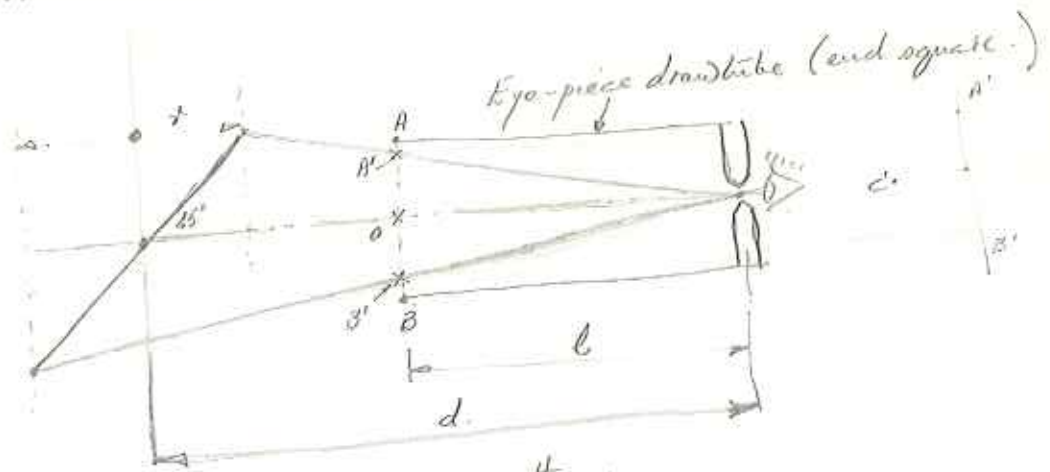 Eye-piece drawtube (end square.)
A
A'
A'
45°
O
C'
B'
B'
B
l
d.